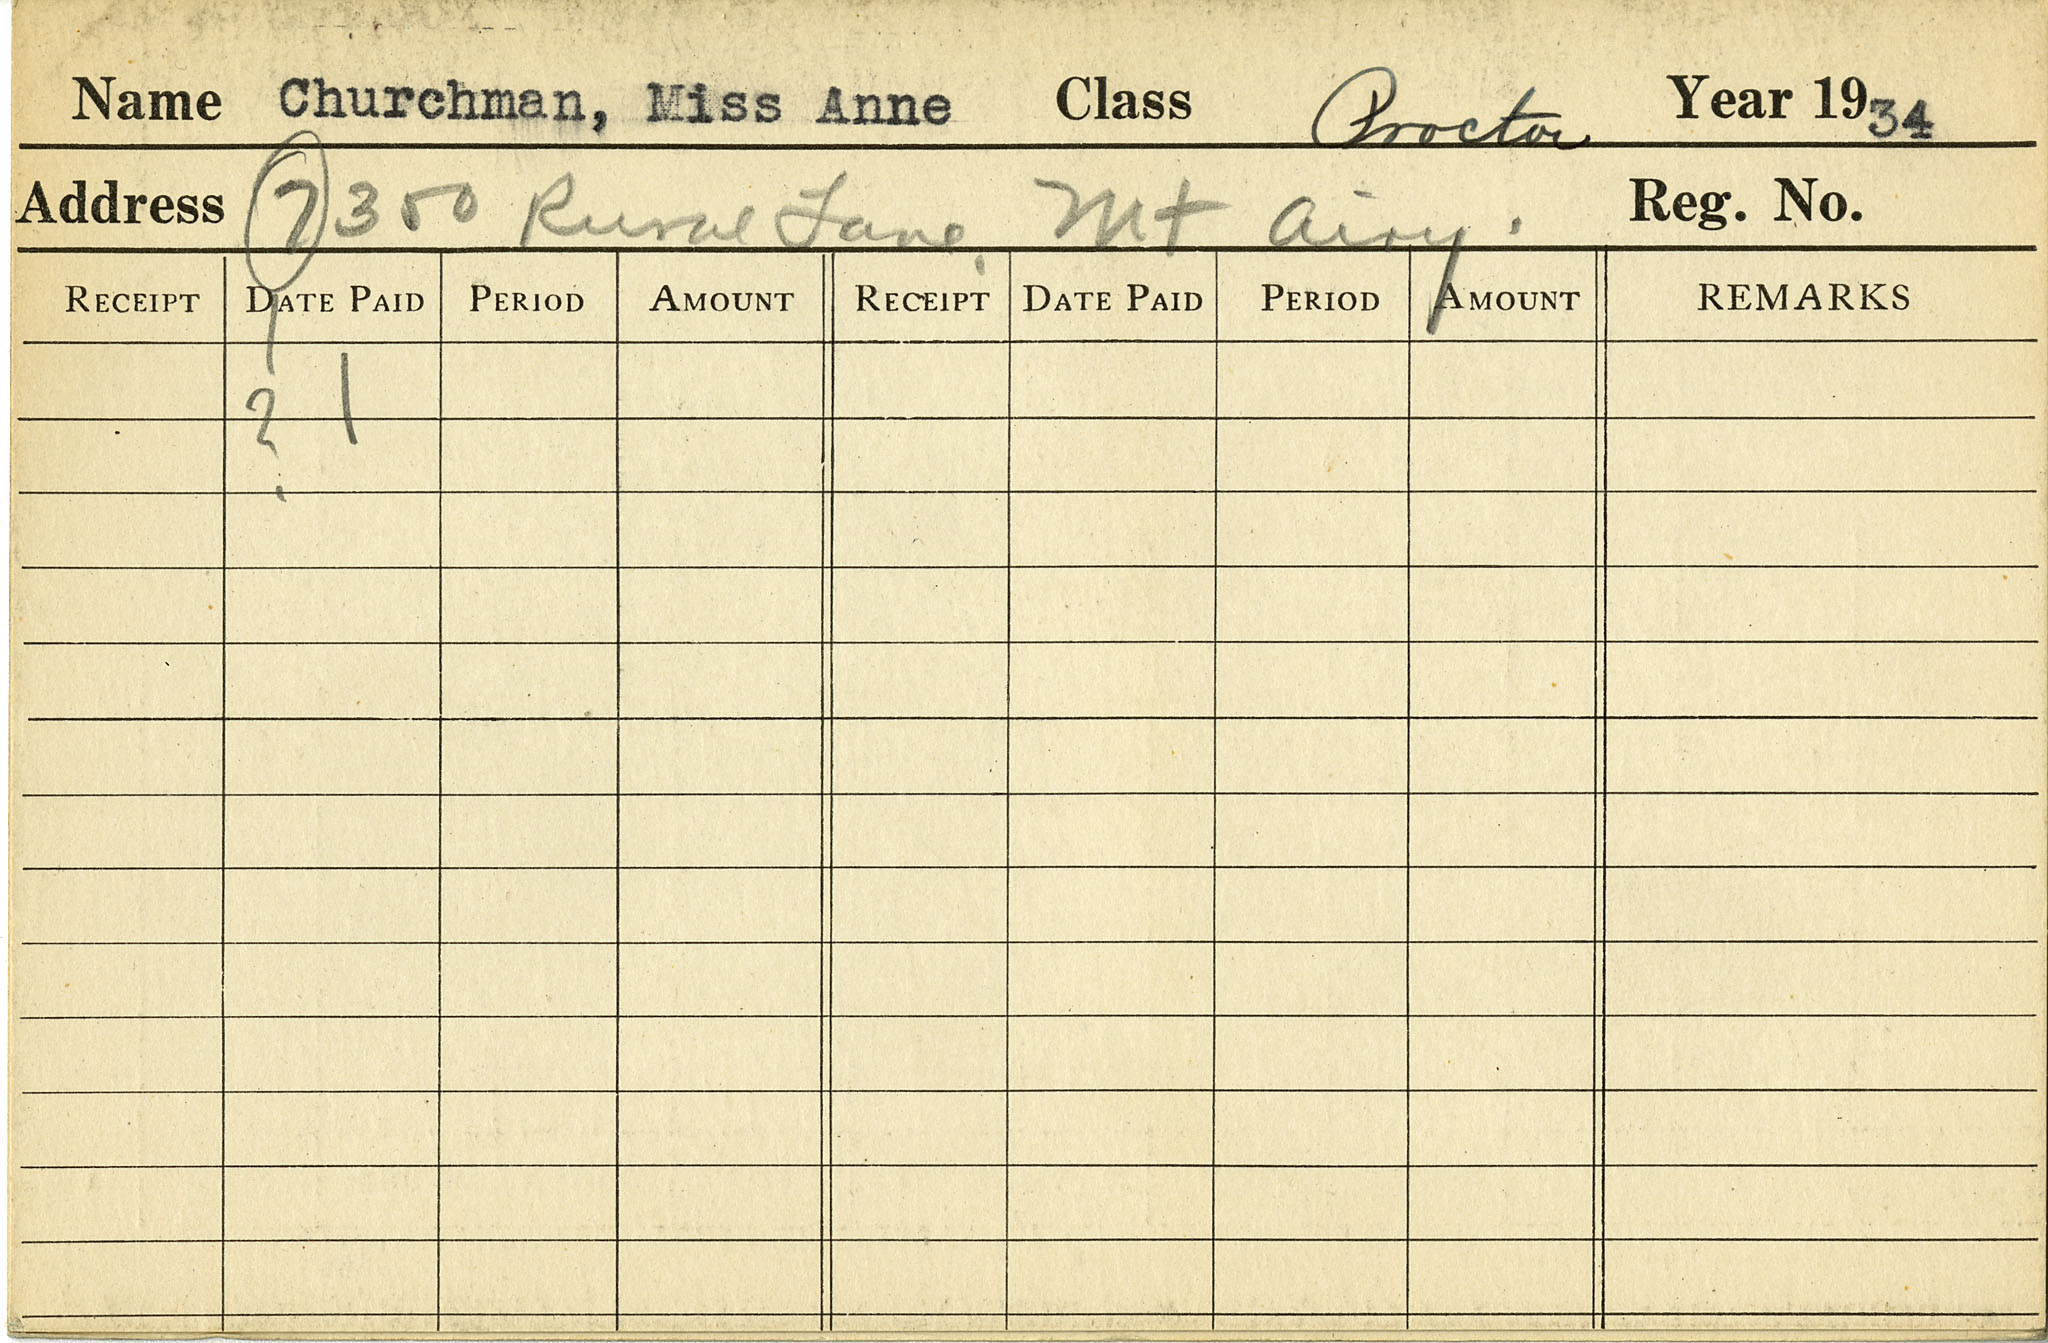 Name Churchman, Miss Anne Class Proctor Year 1934
Address 7350 Rural Lane, Mt Airy. Reg. No.
RECEIPT DATE PAID PERIOD AMOUNT RECEIPT DATE PAID PERIOD AMOUNT REMARKS
? 1